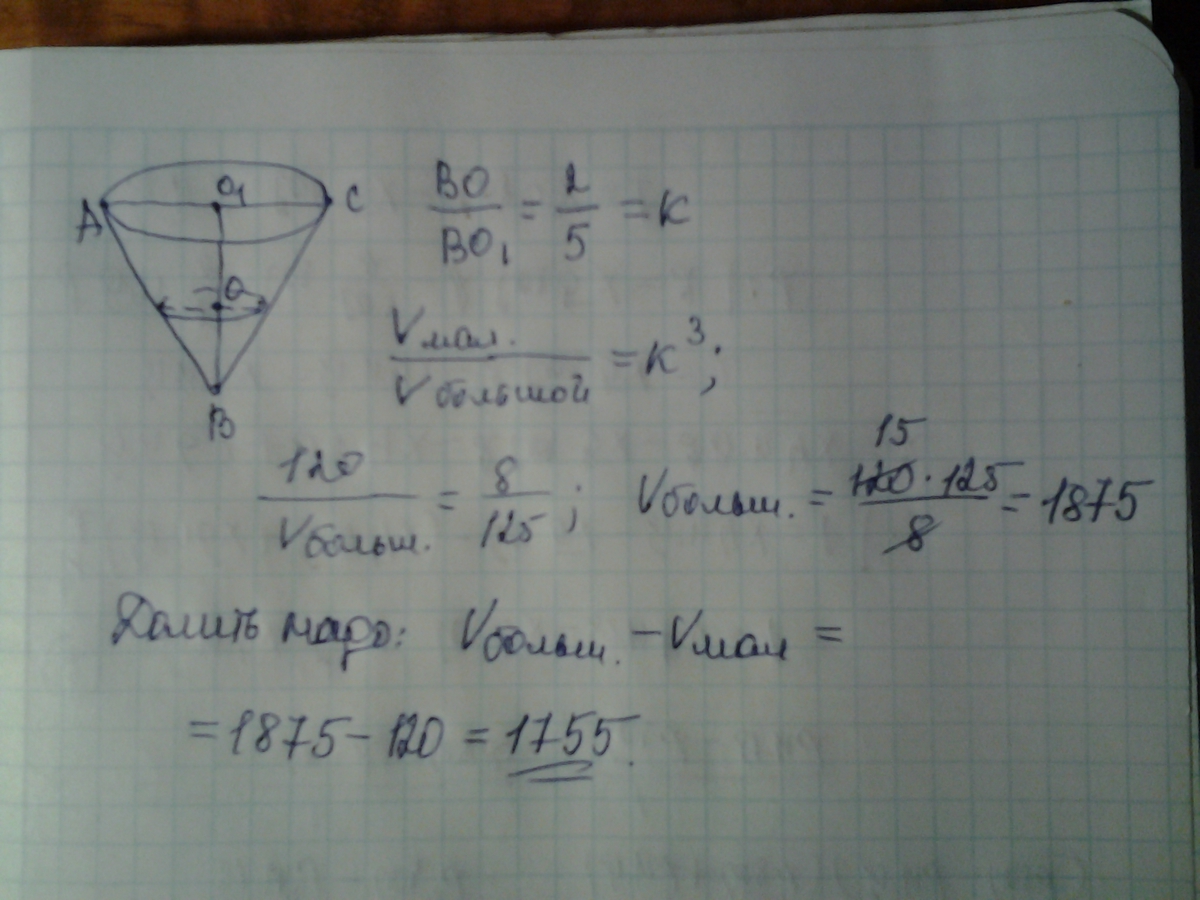 A O₁ C
O
B
BO/BO₁ = 2/5 = к
Vмал./Vбольшой = к³;
120/Vбольш. = 8/125; Vбольш. = 15 120·125/8 = 1875
Долить надо: Vбольш. − Vмал =
= 1875 − 120 = 1755.